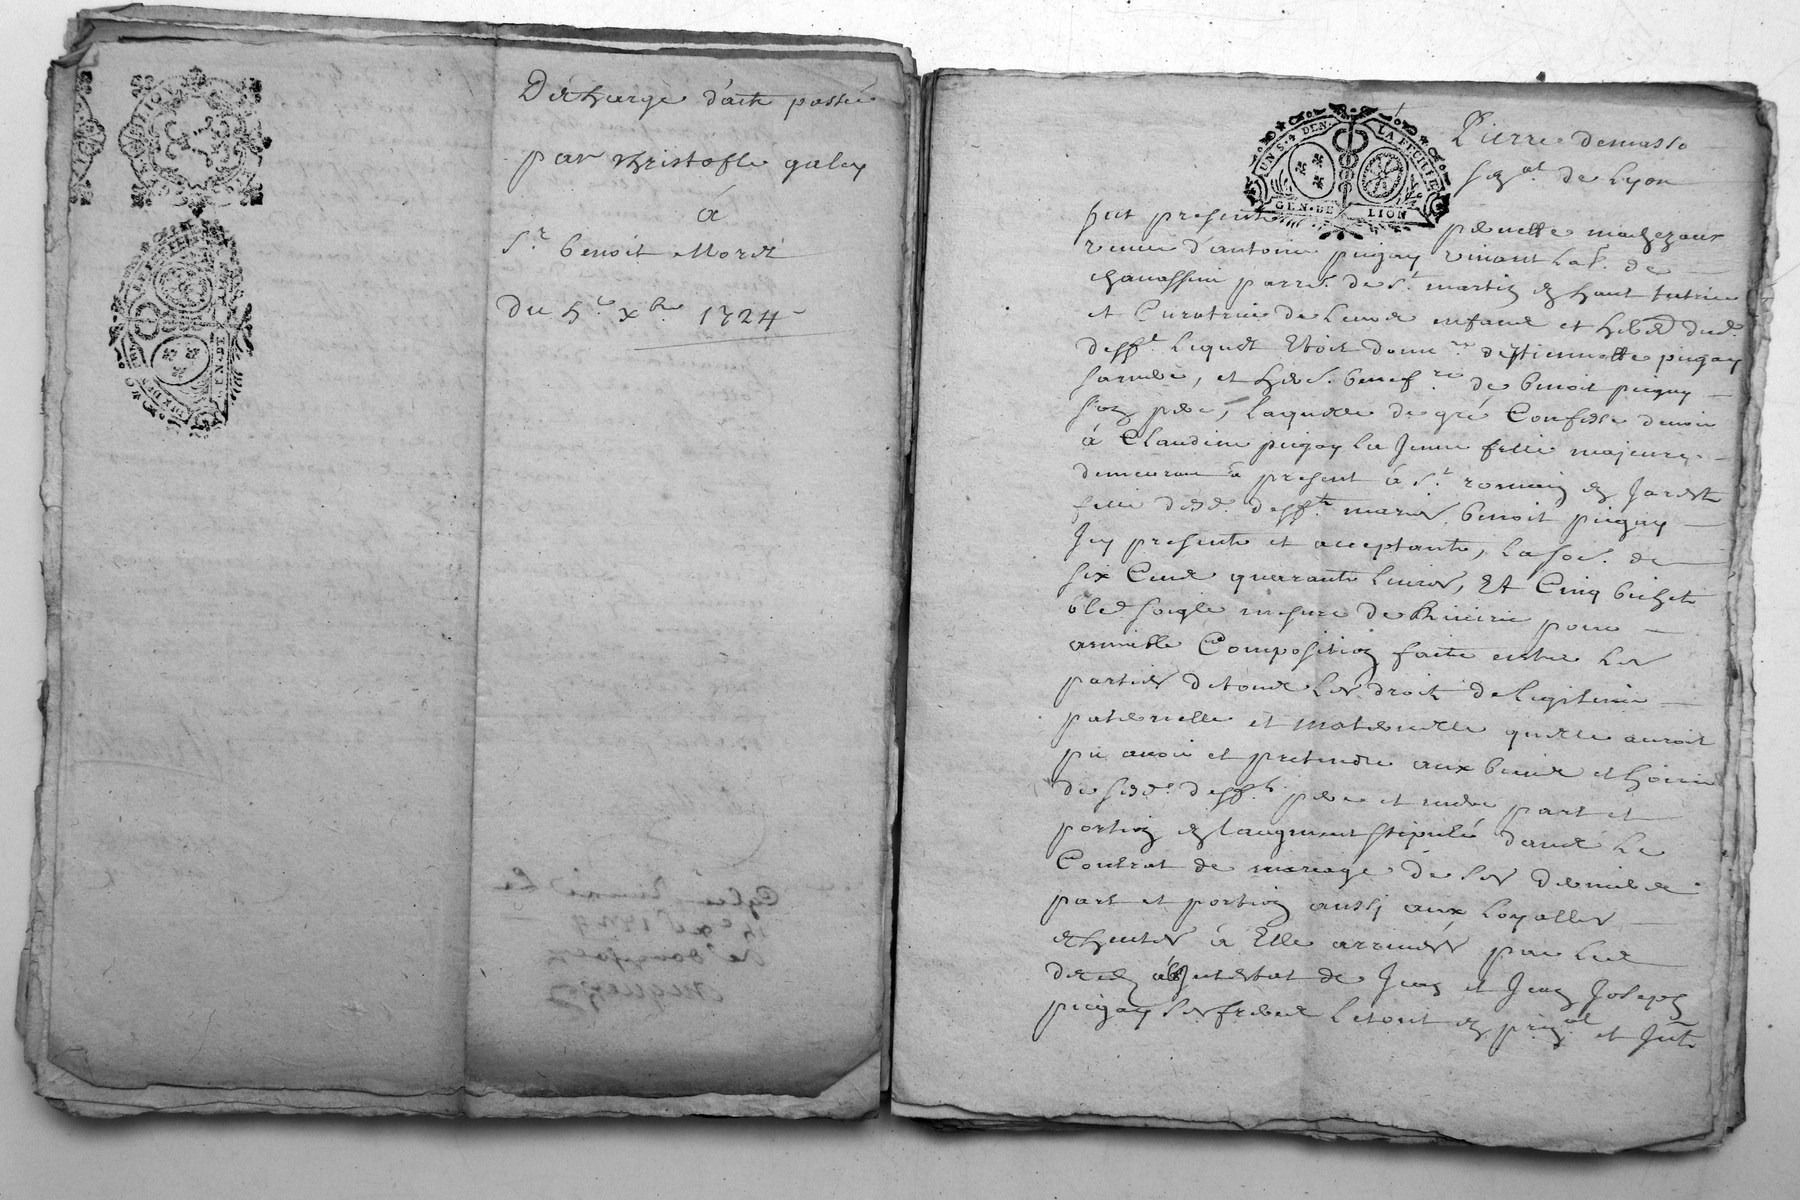 Décharge d'acte passée
par Christofle galey
à
Sr. benoit Moret
Du 5e. xbre. 1724
UN S. 4 DEN. LA FEUILLE
GEN. DE LION
Pierre demasso
de Lyon
fut presente pernette
veufve d'antoine pugay vivant lab. de
parre. de St. martin en haut tutrice
et Curatrice de leurs enfans et hered. dud.
deff. lequel Etoit donre. d'Estiennette pugay
sa mere, et her. benefre. de benoit pugay
son pere, laquelle de gré Confesse devoir
à Claudine pugay la Jeune fille majeure
demeurant à present à St. romain en Jarest
fille desd. deffts. mariés benoit pugay
Icy presente et acceptante, la so. de
six Cent quarante livres, Et Cinq bichets
bled soigle mesure de pour
amiable Composition faite entre les
parties de tous les droits de legitime
paternelle et maternelle qu'elle auroit
pu avoir et pretendre aux biens et hoirie
de sesd. deffts. pere et mere part et
portion en l'augment stipulé dans le
Contrat de mariage de ces derniers
part et portion aussi aux loyalles
echutes à Elle arrivées par les
deces abintestat de Jean et Jean Joseph
pugay ses freres le tout en prinal. et